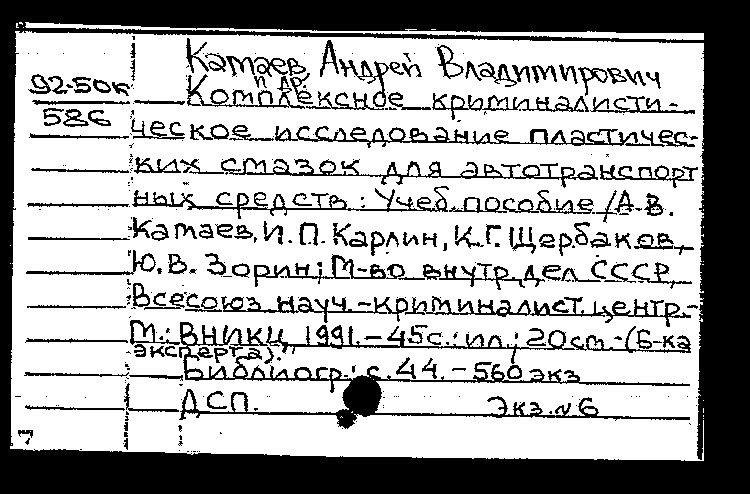 Катаев Андрей Владимирович
и др.
92-50к
586
Комплексное криминалисти-
ческое исследование пластичес-
ких смазок для автотранспорт
ных средств : Учеб. пособие /А.В.
Катаев, И.П. Карлин, К.Г. Щербаков,
Ю.В. Зорин; М-во внутр. дел СССР,
Всесоюз науч.-криминалист. центр.-
М.: ВНИКЦ, 1991.-45с.: ил.; 20 см.-(Б-ка
эксперта)."
Библиогр.: с. 44. - 560 экз
ДСП. Экз. №6
7